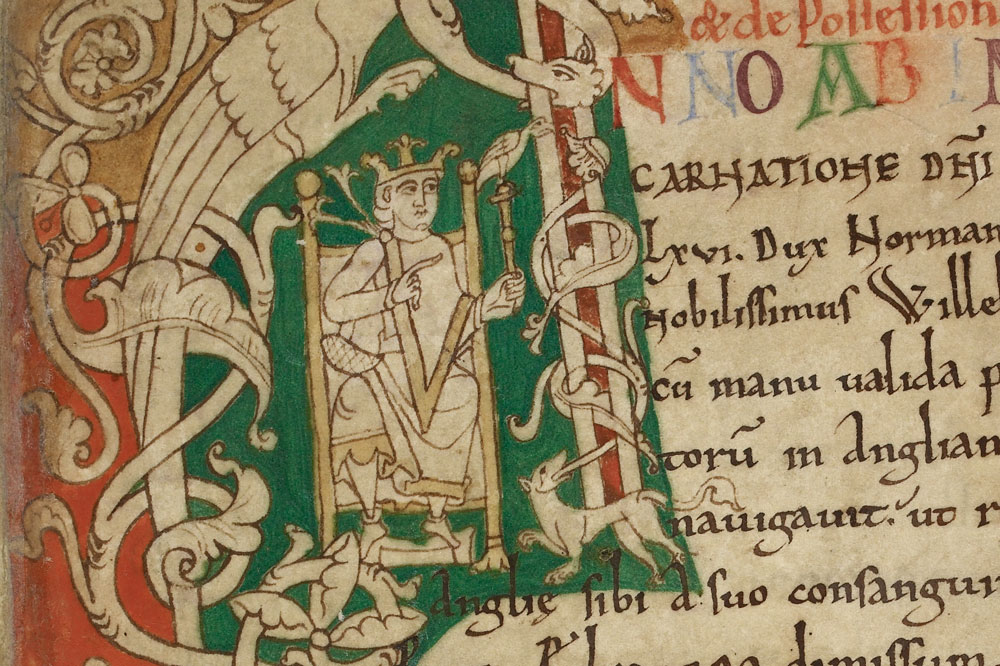 & de Possession
NNO AB IN
CARNATIONE DÑI
Lxvi. Dux Norman
Nobilissimus Wille
cū manu valida p
torū in Anglian
nauigauit. ut r
Anglię sibi a suo consangui
demissum